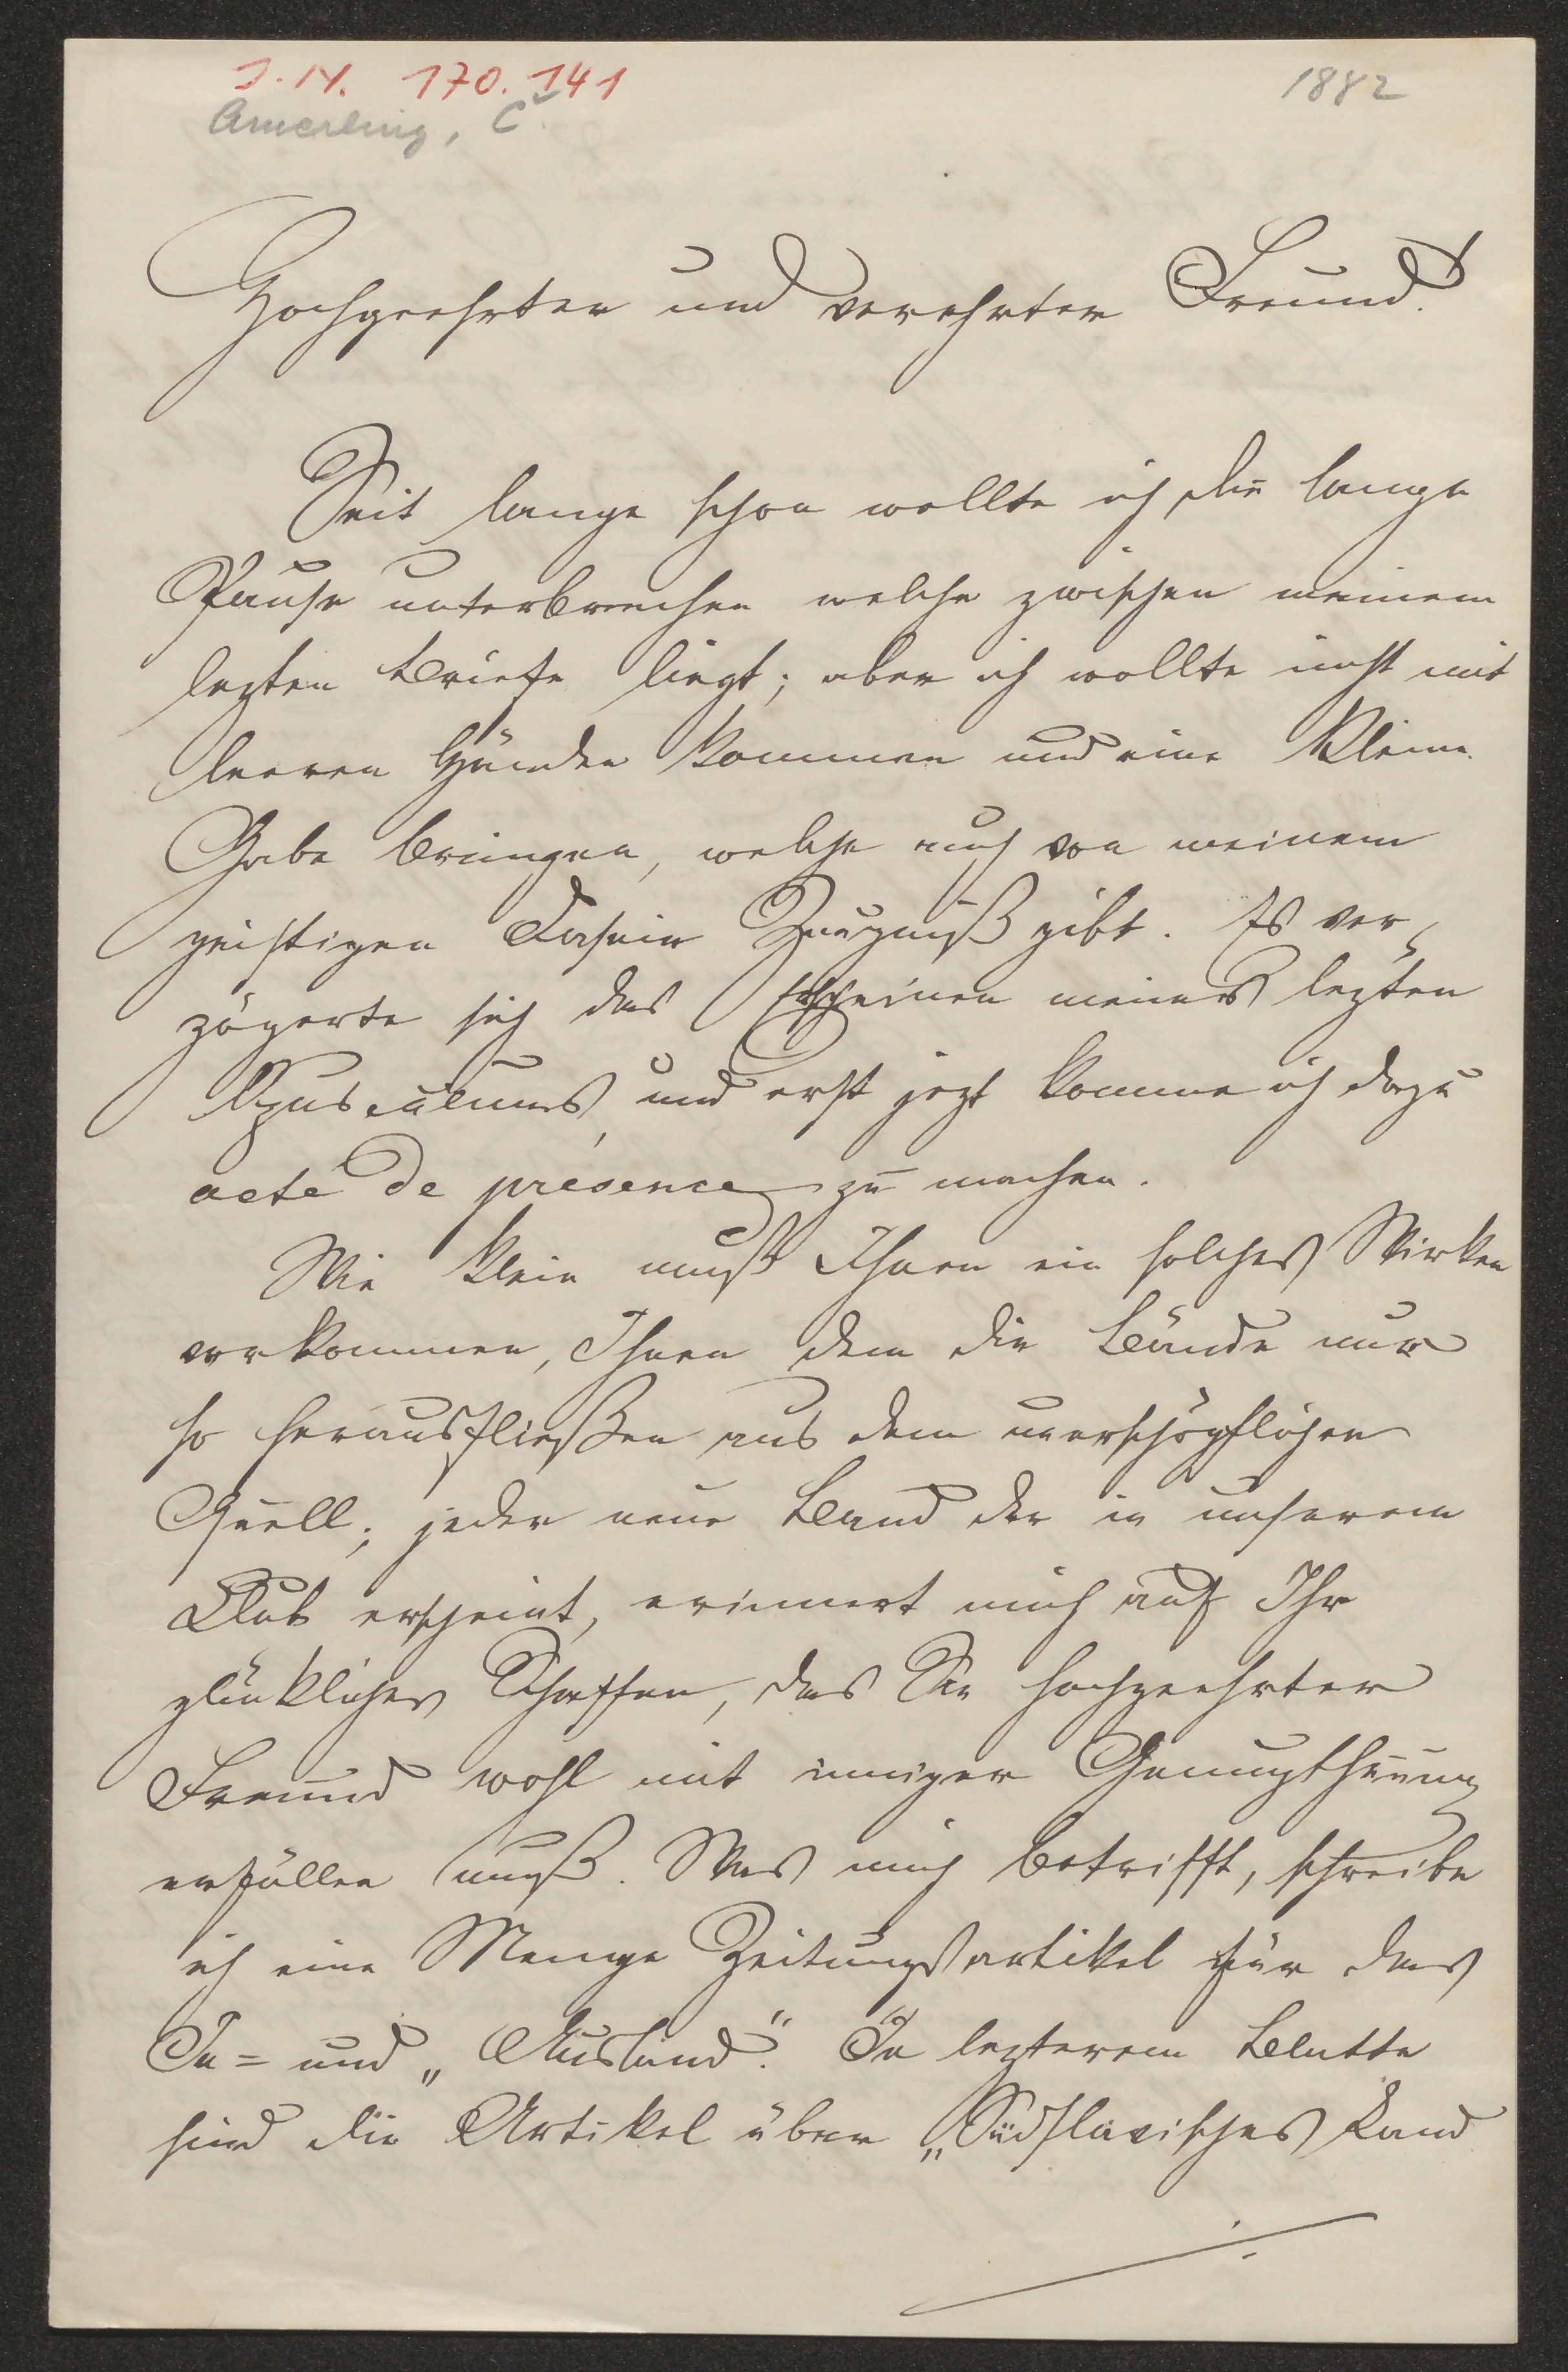 J. N. 170.141
1882
Amerling, C.
Hochgeehrter und verehrter Freund!
Seit lange schon wollte ich die lange
Pause unterbrechen welche zwischen meinem
lezten Briefe liegt; aber ich wollte nicht mit
leeren Händen kommen und eine kleine
Gabe bringen, welche auch von meinem
geistigen Dasein Zeugniß gibt. Es ver-
zögerte sich das Erscheinen meines lezten
Opusculums, und erst jezt komme ich dazu
acte de présence zu machen.
Wie klein muß Ihnen ein solches Wirken
vorkommen, Ihnen dem die Bände nur
so herausfließen aus dem unerschöpflichen
Quell; jeder neue Band der in unserem
Club erscheint, erinnert mich auf Ihr
glückliches Schaffen, das Sie hochgeehrter
Freund wohl mit inniger Genugthuung
erfüllen muß. Was mich betrifft, schreibe
ich eine Menge Zeitungsartikel für das
In= und „Ausland". In lezterem Blatte
sind die Artikel über „Südslavisches Land